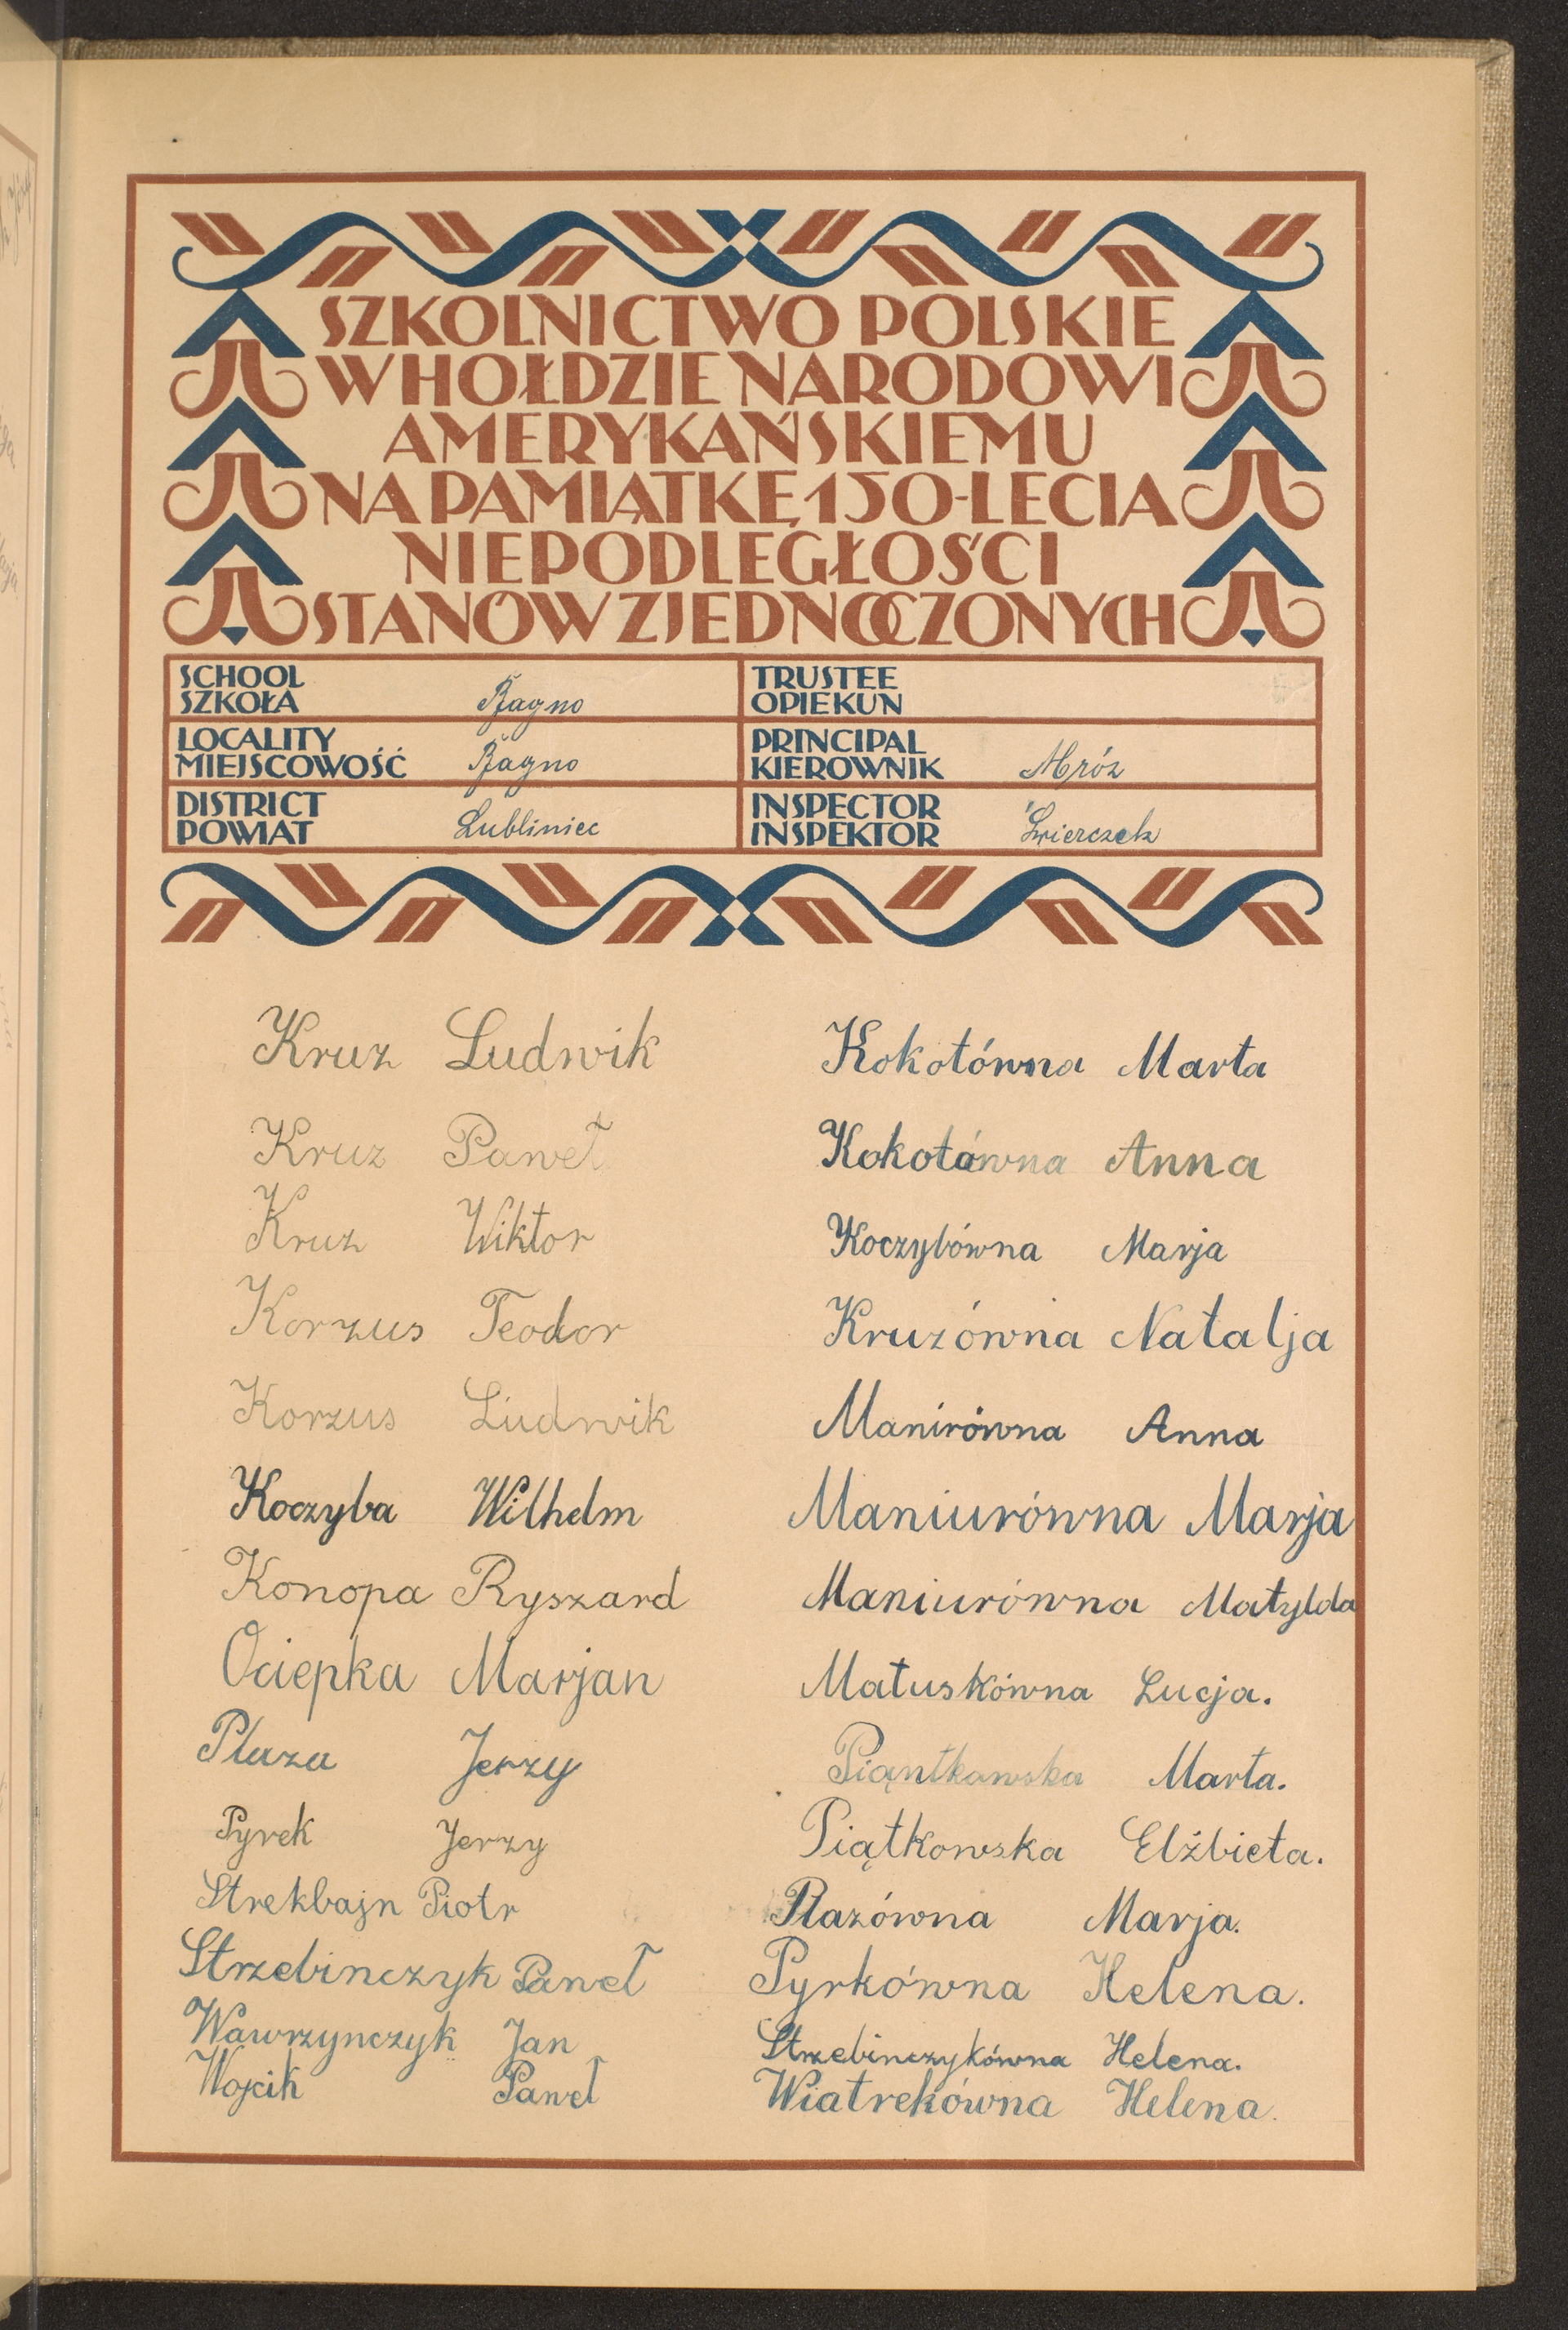 SZKOLNICTWO POLSKIE
W HOŁDZIE NARODOWI
AMERYKAŃSKIEMU
NA PAMIĄTKĘ 150-LECIA
NIEPODLEGŁOŚCI
STANÓW ZJEDNOCZONYCH
SCHOOL
SZKOŁA
TRUSTEE
OPIEKUN
LOCALITY
MIEJSCOWOŚĆ
PRINCIPAL
KIEROWNIK Mróz
DISTRICT
POWIAT Lubliniec
INSPECTOR
INSPEKTOR Świerczek
Kruz Ludwik
Kruz Paweł
Kruz Wiktor
Korzus Teodor
Korzus Ludwik
Koczyba Wilhelm
Konopa Ryszard
Ociepka Marjan
Plaza Jerzy
Pyrek Jerzy
Strekbajn Piotr
Strzebinczyk Paweł
Wawrzynczyk Jan
Wojcik Paweł
Kokotówna Marta
Kokotówna Anna
Koczybówna Marja
Kruzówna Natalja
Manirówna Anna
Maniurówna Marja
Maniurówna Matylda
Matuskówna Lucja.
Piąntkawska Marta.
Piątkowska Elżbieta.
Plazówna Marja.
Pyrkówna Helena.
Strzebinczykówna Helena.
Wiatrekówna Helena.